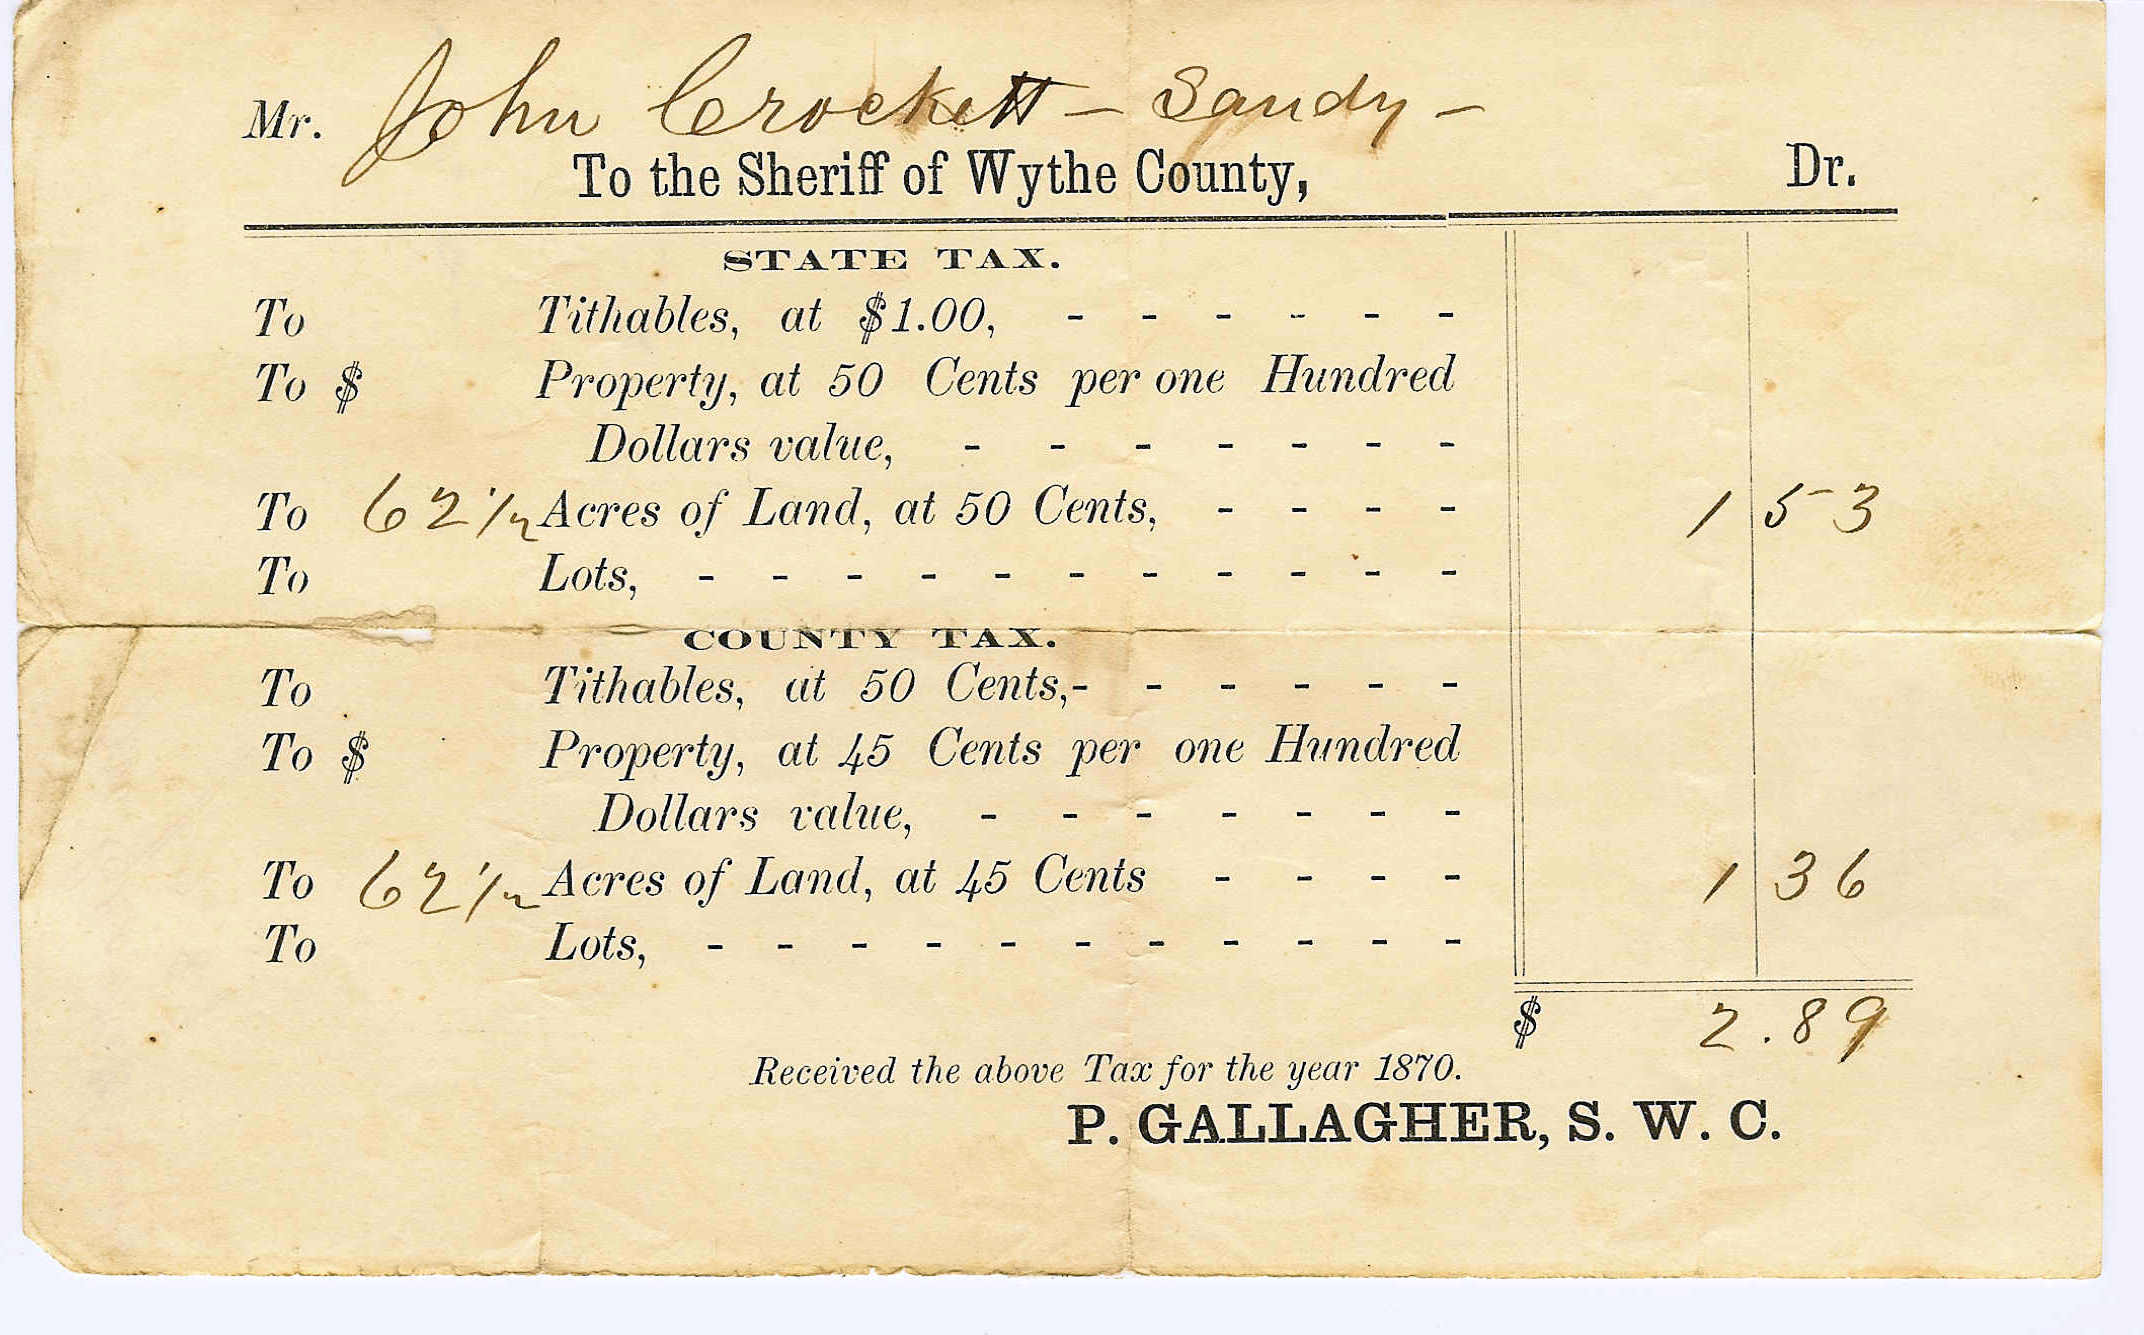 Mr. John Crockett – Sandy –
To the Sheriff of Wythe County, Dr.
STATE TAX.
To Tithables, at $1.00, - - - - - -
To $ Property, at 50 Cents per one Hundred
Dollars value, - - - - - - -
To 62 1/2 Acres of Land, at 50 Cents, - - - - 1 53
To Lots, - - - - - - - - - - -
COUNTY TAX.
To Tithables, at 50 Cents, - - - - - -
To $ Property, at 45 Cents per one Hundred
Dollars value, - - - - - - -
To 62 1/2 Acres of Land, at 45 Cents - - - - 1 36
To Lots, - - - - - - - - - - -
$ 2.89
Received the above Tax for the year 1870.
P. GALLAGHER, S. W. C.